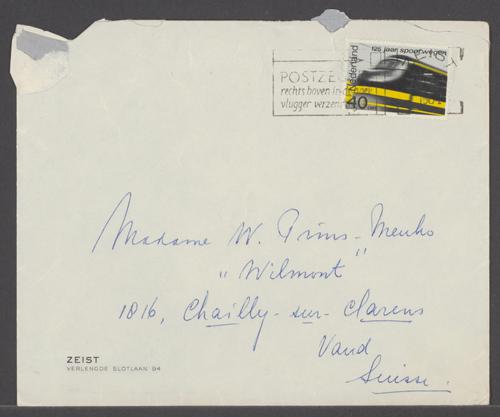 125 jaar spoorwegen
Nederland
40
ZEIST
POSTZE
rechts boven in de hoek
vlugger verzen
Madame W. Prins-Menko
"Wilmont"
1816, Chailly-sur-Clarens
Vaud
Suisse.
ZEIST
VERLENGDE SLOTLAAN 94